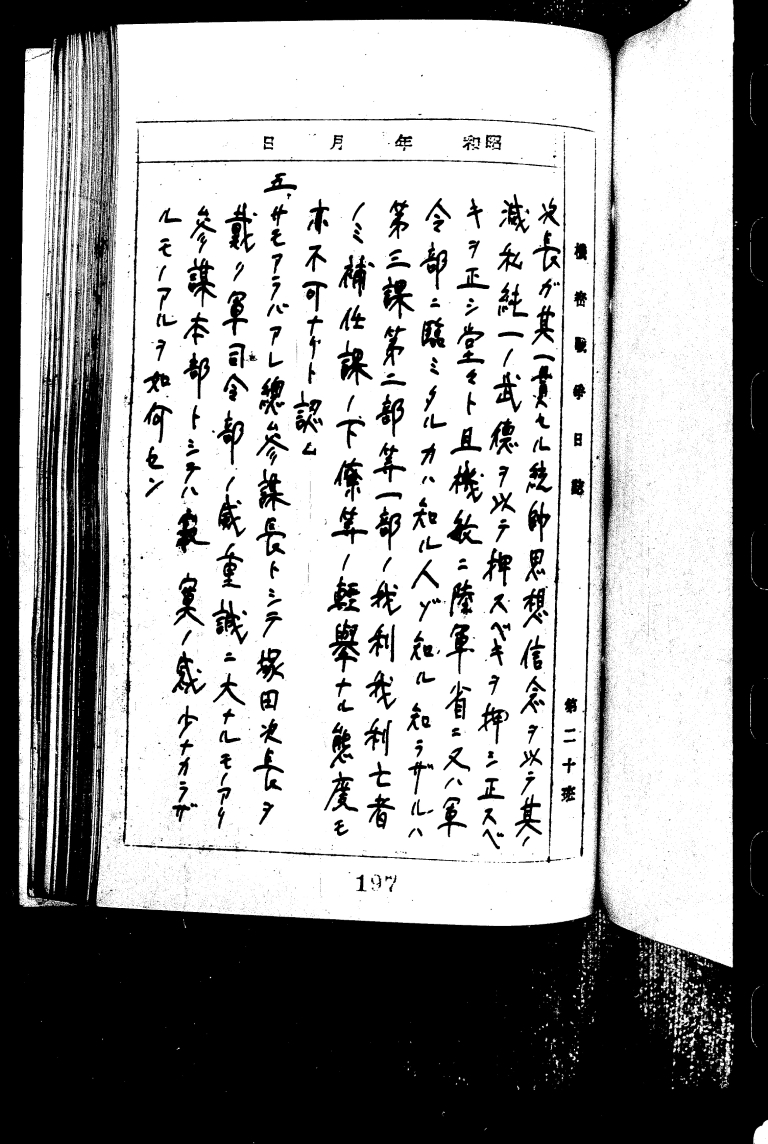 機密戰爭日誌 第二十班
昭和 年 月 日
次長ガ其一貫セル統帥思想信念ヲ以テ其ノ
滅私純一ノ武德ヲ以テ押スベキヲ押シ正スベ
キヲ正シ堂々ト且機敏ニ陸軍省ニ又ハ軍
令部ニ臨ミタルカハ知ル人ゾ知ル知ラザルハ
第三課第二部等一部ノ我利我利亡者
ノミ補任課ノ下僚等ノ輕擧ナル態度モ
亦不可ナリト認ム
五、サモアラバアレ總參謀長トシテ塚田次長ヲ
戴ク軍司令部ノ威重誠ニ大ナルモノアリ
參謀本部トシテハ寂寞ノ感少ナカラザ
ルモノアルヲ如何セン
197